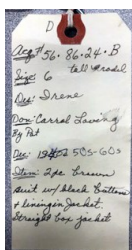 D
Acq# 56.86.24.B
Size: 6
Des: Irene
Don: Carrol Loving
By Pat
Dec: 50s-60s
Item: 2pc brown
suit w/ black Buttons
+ lining in Jacket.
Straight box jacket